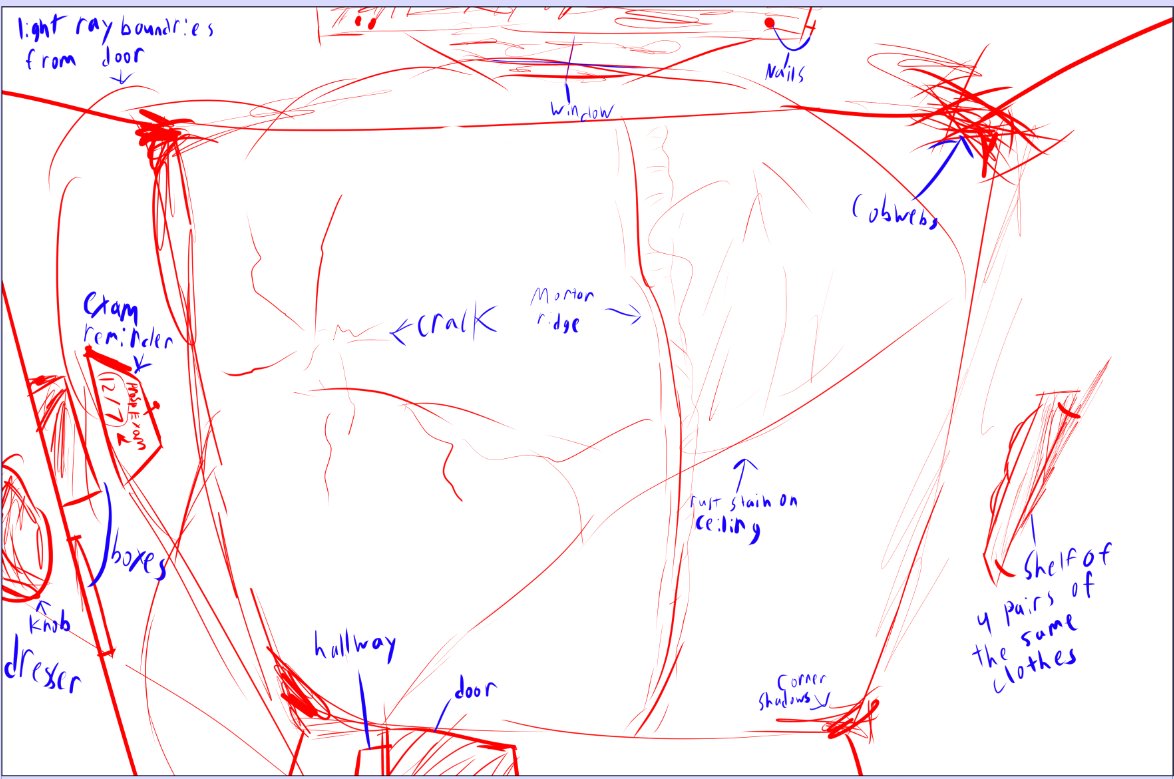 light ray boundries
from door
Nails
window
Cobwebs
exam
reminder
crack
Mortar
ridge
12/7
rust stain on
ceiling
boxes
Knob
dresser
hallway
door
Corner
shadows
Shelf of
4 pairs of
the same
clothes